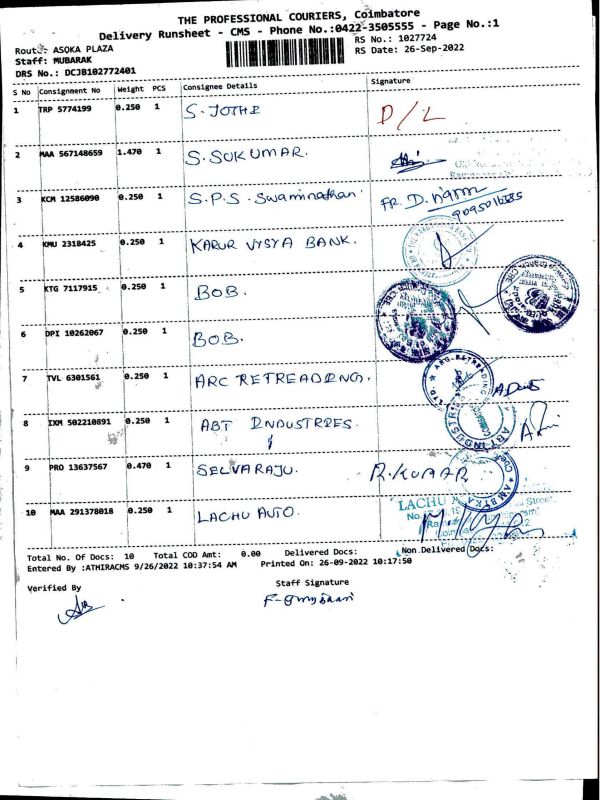 THE PROFESSIONAL COURIERS, Coimbatore
Delivery Runsheet - CMS - Phone No.:0422-3505555 - Page No.:1
Route: ASOKA PLAZA
RS No.: 1027724
Staff: MUBARAK
RS Date: 26-Sep-2022
DRS No.: DCJB102772401
S No Consignment No Weight PCS Consignee Details Signature
1 TRP 5774199 0.250 1 S. JOTHI D/L
2 MAA 567148659 1.470 1 S. SUKUMAR.
3 KCM 12586090 0.250 1 S.P.S. Swaminathan. FR. D.
4 KMU 2318425 0.250 1 KARUR VYSYA BANK.
5 KTG 7117915 0.250 1 BOB.
6 DPI 10262067 0.250 1 BOB.
7 TVL 6301561 0.250 1 ARC RETREADING.
ARC RETREADING
8 IXM 502210891 0.250 1 ABT INDUSTRIES.
ABT INDUSTRIES
9 PRO 13637567 0.470 1 SELVARAJU. R.KUMAR
10 MAA 291378018 0.250 1 LACHU AUTO.
LACHU
Total No. Of Docs: 10 Total COD Amt: 0.00 Delivered Docs: Non Delivered Docs:
Entered By :ATHIRACMS 9/26/2022 10:37:54 AM Printed On: 26-09-2022 10:17:50
Verified By
Staff Signature